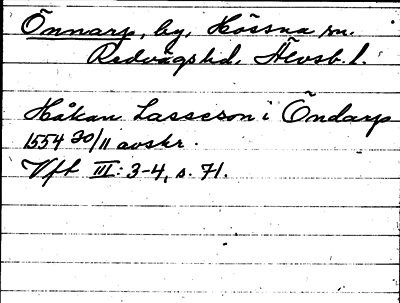 Önnarp, by, Hössna sn.
Redvägs hd, Älvsb. l.
Håkan Lasseson i Öndarp
1554 30/11 avskr.
Vft III: 3-4, s. 71.